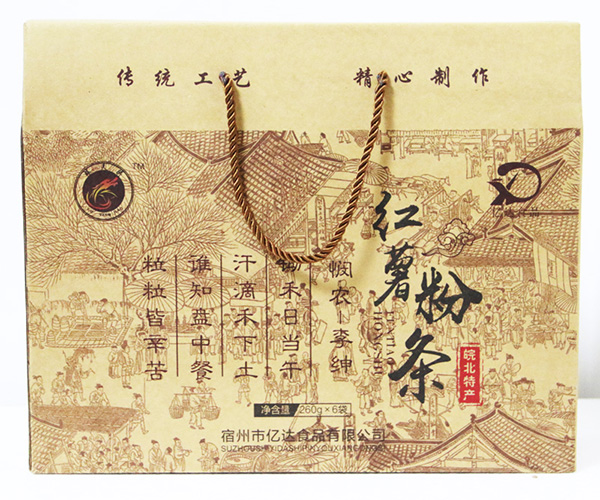 传统工艺 精心制作
TM
红薯粉条
HONG SHU
FEN TIAO
皖北特产
悯农-李绅
锄禾日当午
汗滴禾下土
谁知盘中餐
粒粒皆辛苦
净含量 260g×6袋
宿州市亿达食品有限公司
SUZHOUSHIYIDASHIPINYOUXIANGONGSI